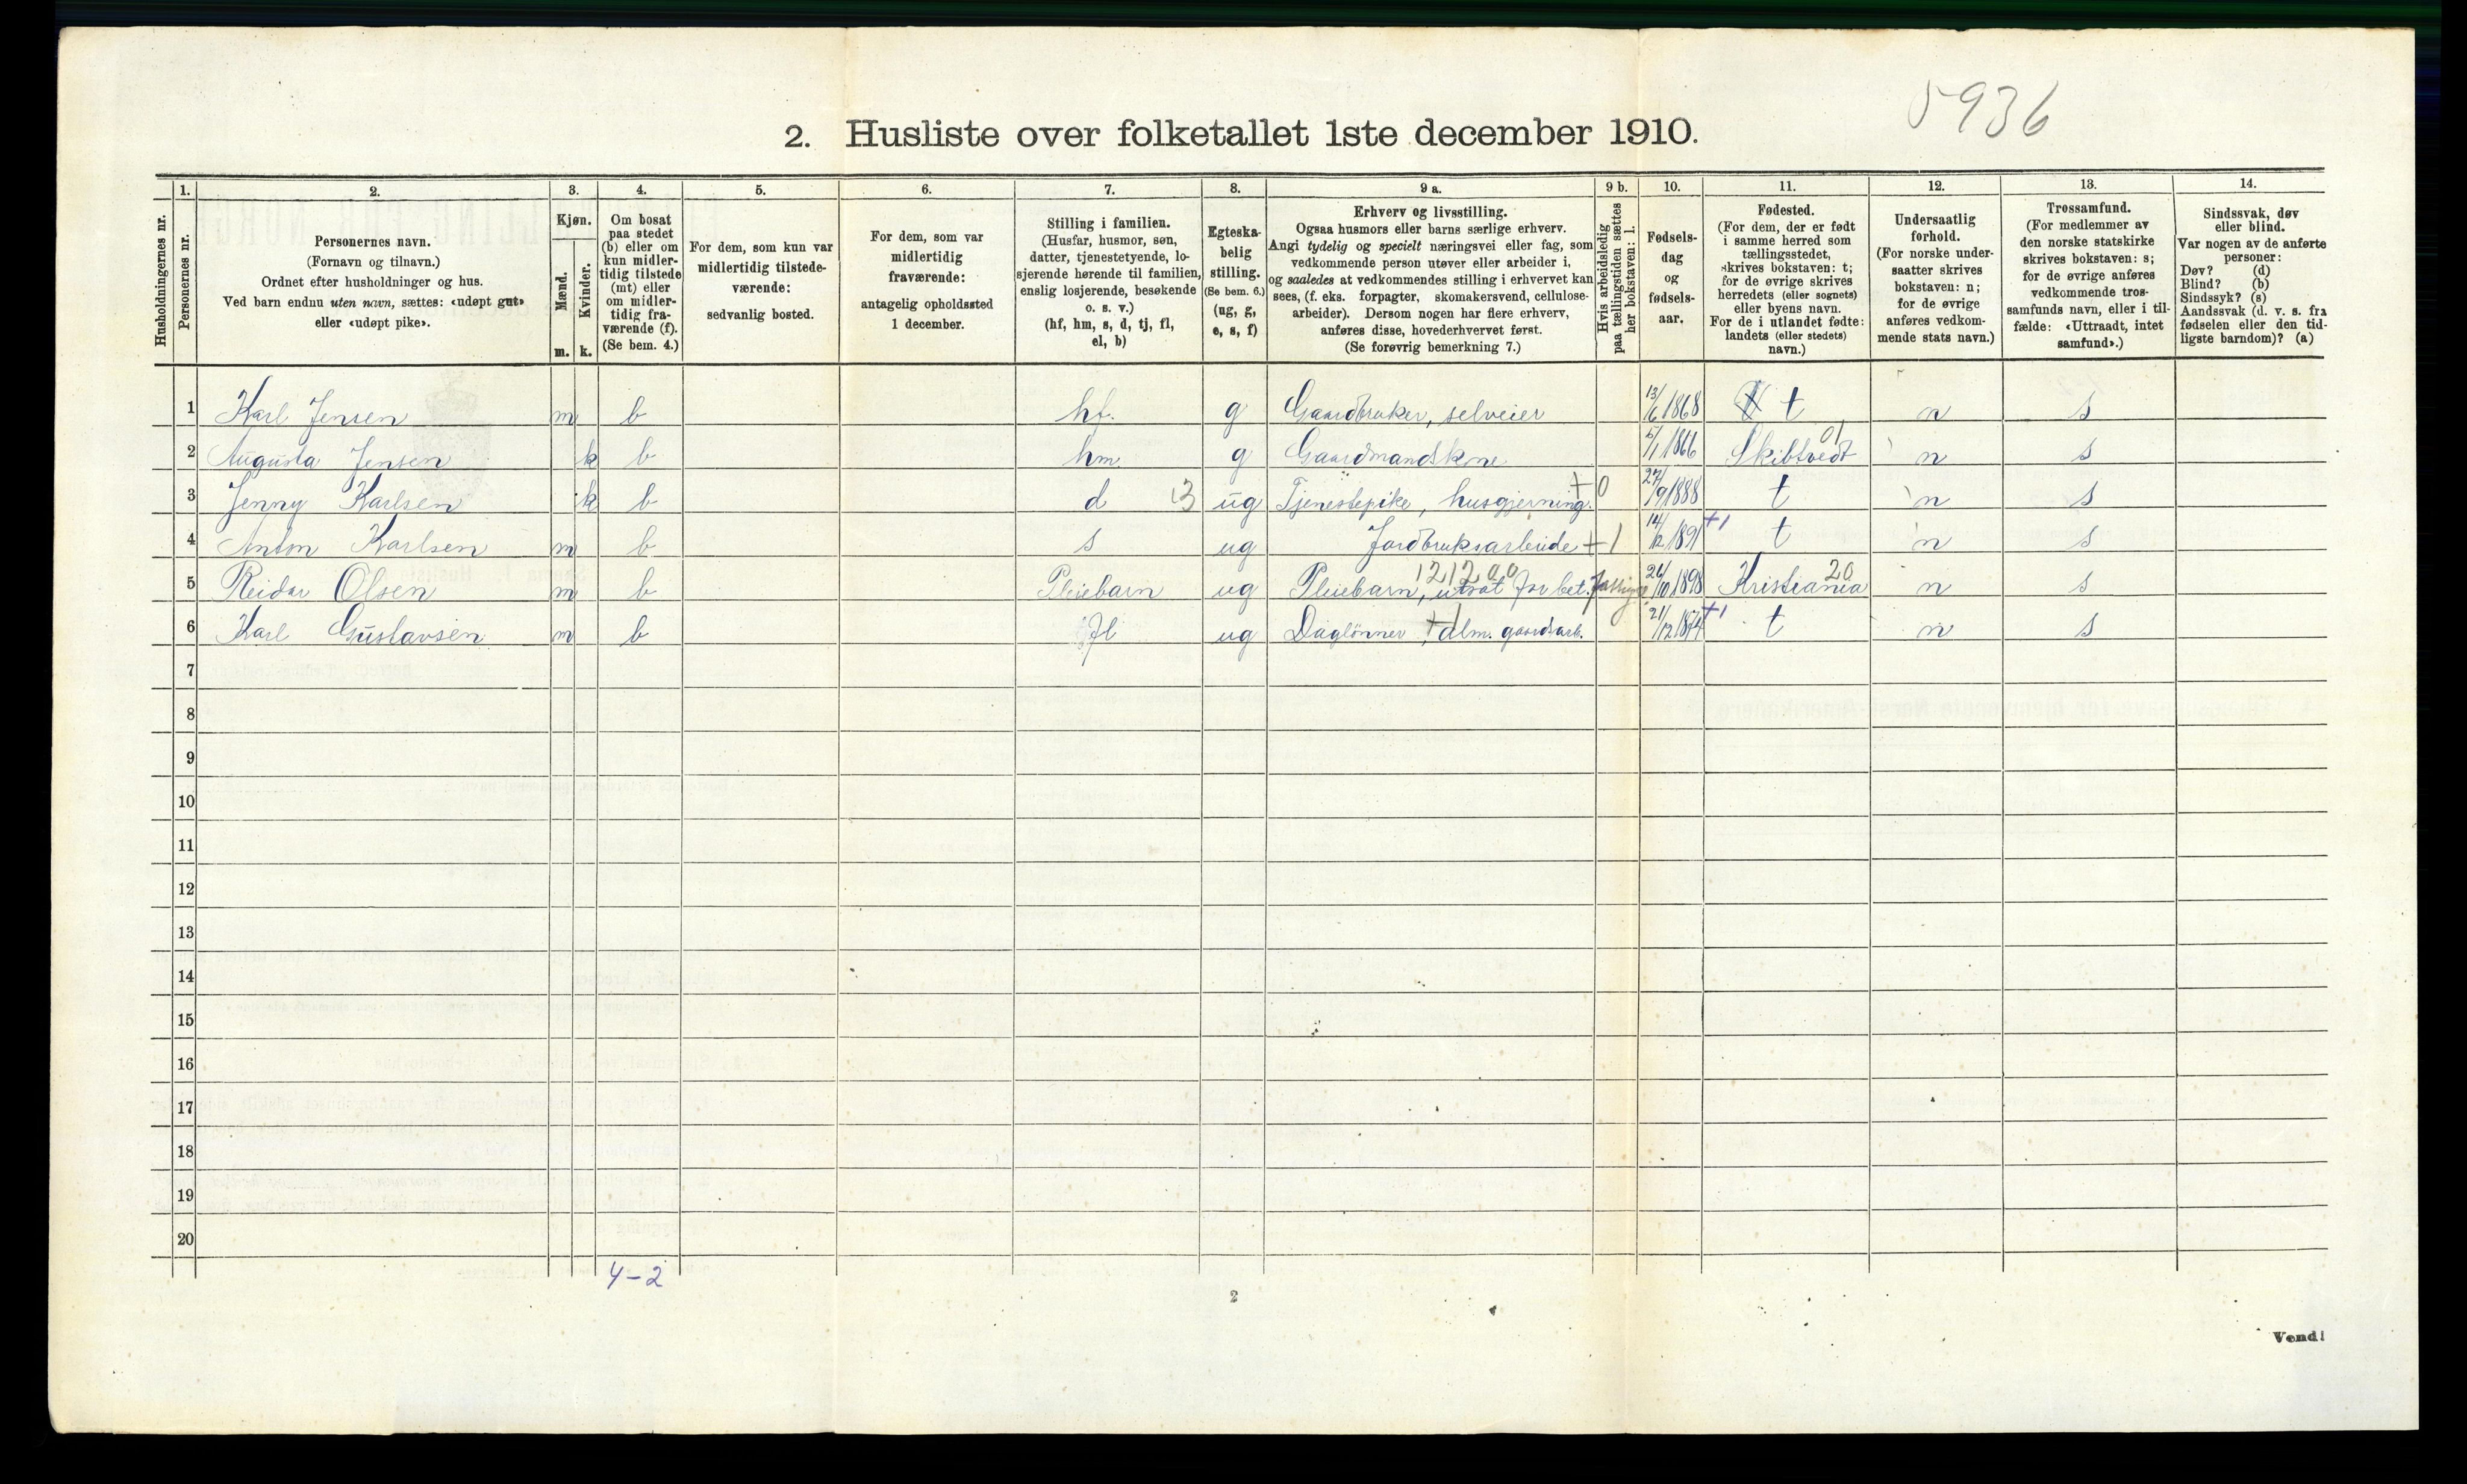 5936
2. Husliste over folketallet 1ste december 1910.
1. 2. 3. 4. 5. 6. 7. 8. 9 a. 9 b. 10. 11. 12. 13. 14.
Husholdningernes nr.
Personernes nr.
Personernes navn.
(Fornavn og tilnavn.)
Ordnet efter husholdninger og hus.
Ved barn endnu uten navn, sættes: «udøpt gut»
eller «udøpt pike».
Kjøn.
Mænd.
Kvinder.
m. k.
Om bosat
paa stedet
(b) eller om
kun midler-
tidig tilstede
(mt) eller
om midler-
tidig fra-
værende (f).
(Se bem. 4.)
For dem, som kun var
midlertidig tilstede-
værende:
sedvanlig bosted.
For dem, som var
midlertidig
fraværende:
antagelig opholdssted
1 december.
Stilling i familien.
(Husfar, husmor, søn,
datter, tjenestetyende, lo-
sjerende hørende til familien,
enslig losjerende, besøkende
o. s. v.)
(hf, hm, s, d, tj, fl,
el, b)
Egteska-
belig
stilling.
(Se bem. 6.)
(ug, g,
e, s, f)
Erhverv og livsstilling.
Ogsaa husmors eller barns særlige erhverv.
Angi tydelig og specielt næringsvei eller fag, som
vedkommende person utøver eller arbeider i,
og saaledes at vedkommendes stilling i erhvervet kan
sees, (f. eks. forpagter, skomakersvend, cellulose-
arbeider). Dersom nogen har flere erhverv,
anføres disse, hovederhvervet først.
(Se forøvrig bemerkning 7.)
Hvis arbeidsledig
paa tællingstiden sættes
her bokstaven: l.
Fødsels-
dag
og
fødsels-
aar.
Fødested.
(For dem, der er født
i samme herred som
tællingsstedet,
skrives bokstaven: t;
for de øvrige skrives
herredets (eller sognets)
eller byens navn.
For de i utlandet fødte:
landets (eller stedets)
navn.)
Undersaatlig
forhold.
(For norske under-
saatter skrives
bokstaven: n;
for de øvrige
anføres vedkom-
mende stats navn.)
Trossamfund.
(For medlemmer av
den norske statskirke
skrives bokstaven: s;
for de øvrige anføres
vedkommende tros-
samfunds navn, eller i til-
fælde: «Uttraadt, intet
samfund».)
Sindssvak, døv
eller blind.
Var nogen av de anførte
personer:
Døv? (d)
Blind? (b)
Sindssyk? (s)
Aandssvak (d. v. s. fra
fødselen eller den tid-
ligste barndom)? (a)
1 Karl Jensen m b hf. g Gaardbruker, selveier 13/6 1868 t n s
2 Augusta Jensen k b hm g Gaardmandskone 5/1 1866 Skibtvedt 01 n s
3 Jenny Karlsen k b d 3 ug Tjenestepike, husgjerning. +0 27/9 1888 t n s
4 Anton Karlsen m b s ug Jordbruksarbeide +1 14/12 1891 +1 t n s
5 Reidar Olsen m b Pleiebarn ug Pleiebarn, utsat for bet. 121200 26/10 1898 Kristiania 20 n s
6 Karl Gustavsen m b fl ug Daglønner, alm. gaardsarb. +1 21/12 1874 +1 t n s
7
8
9
10
11
12
13
14
15
16
17
18
19
20
4-2
2
Vend!